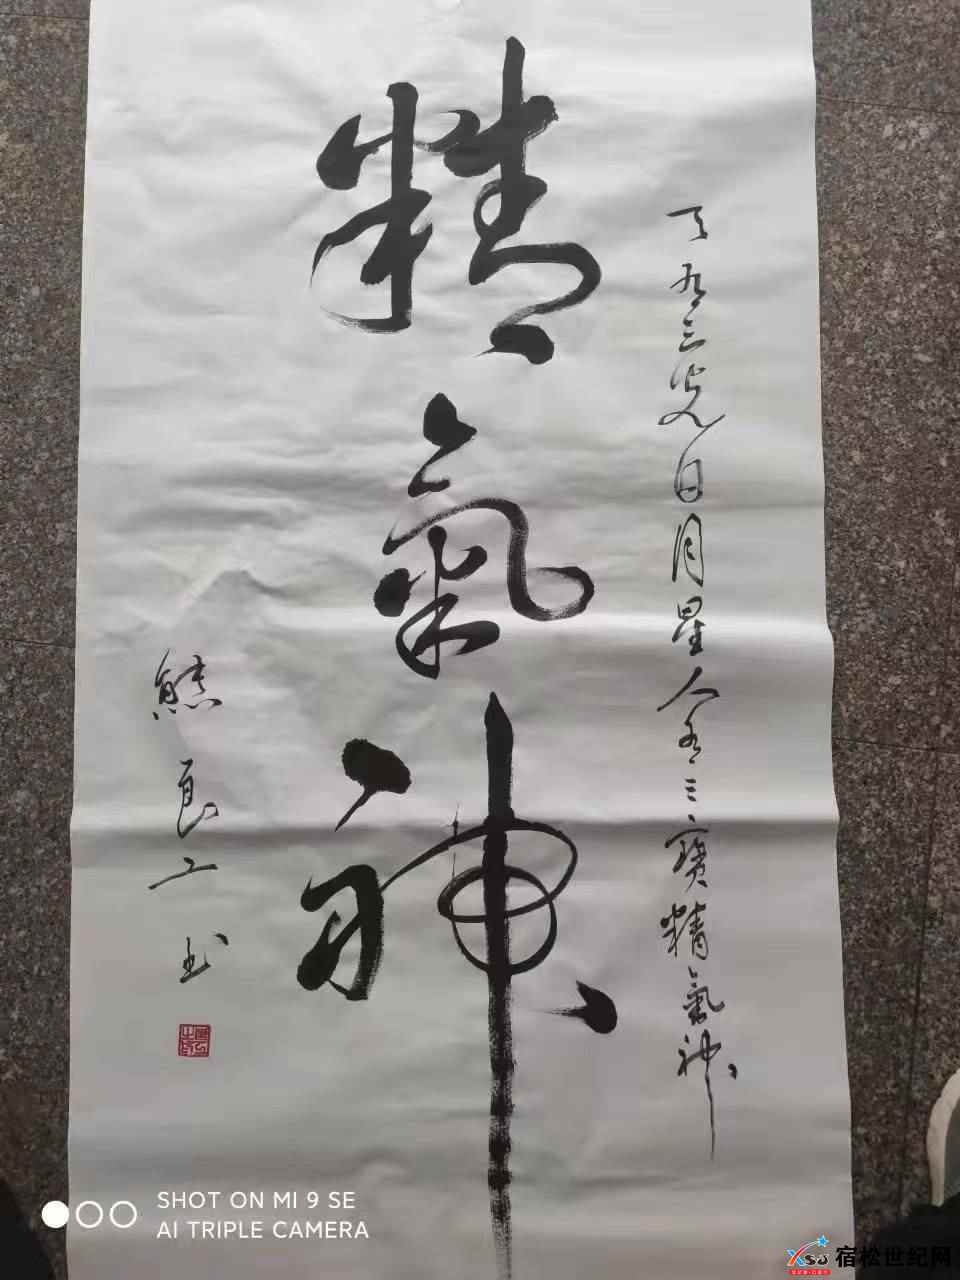 精氣神
天有三光日月星人有三寳精氣神
熊良工书
SHOT ON MI 9 SE
AI TRIPLE CAMERA
XSSJ
宿松世纪网